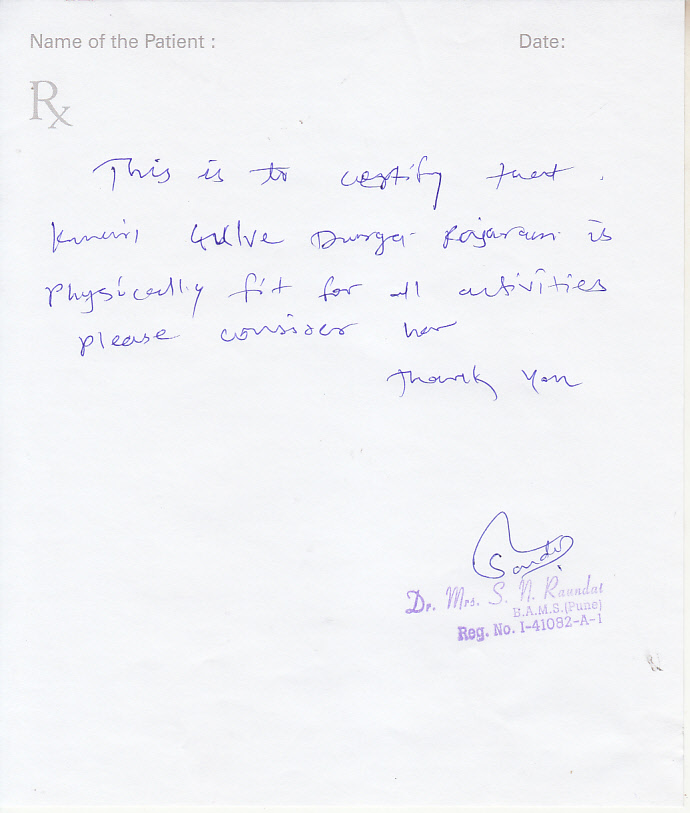 Name of the Patient : Date:
Rx
This is to certify that .
Kumari Gulve Durga Rajaram is
physically fit for all activities
please consider her
Thank You
Dr. Mrs. S. N. Raundal
B.A.M.S.(Pune)
Reg. No. I-41082-A-1